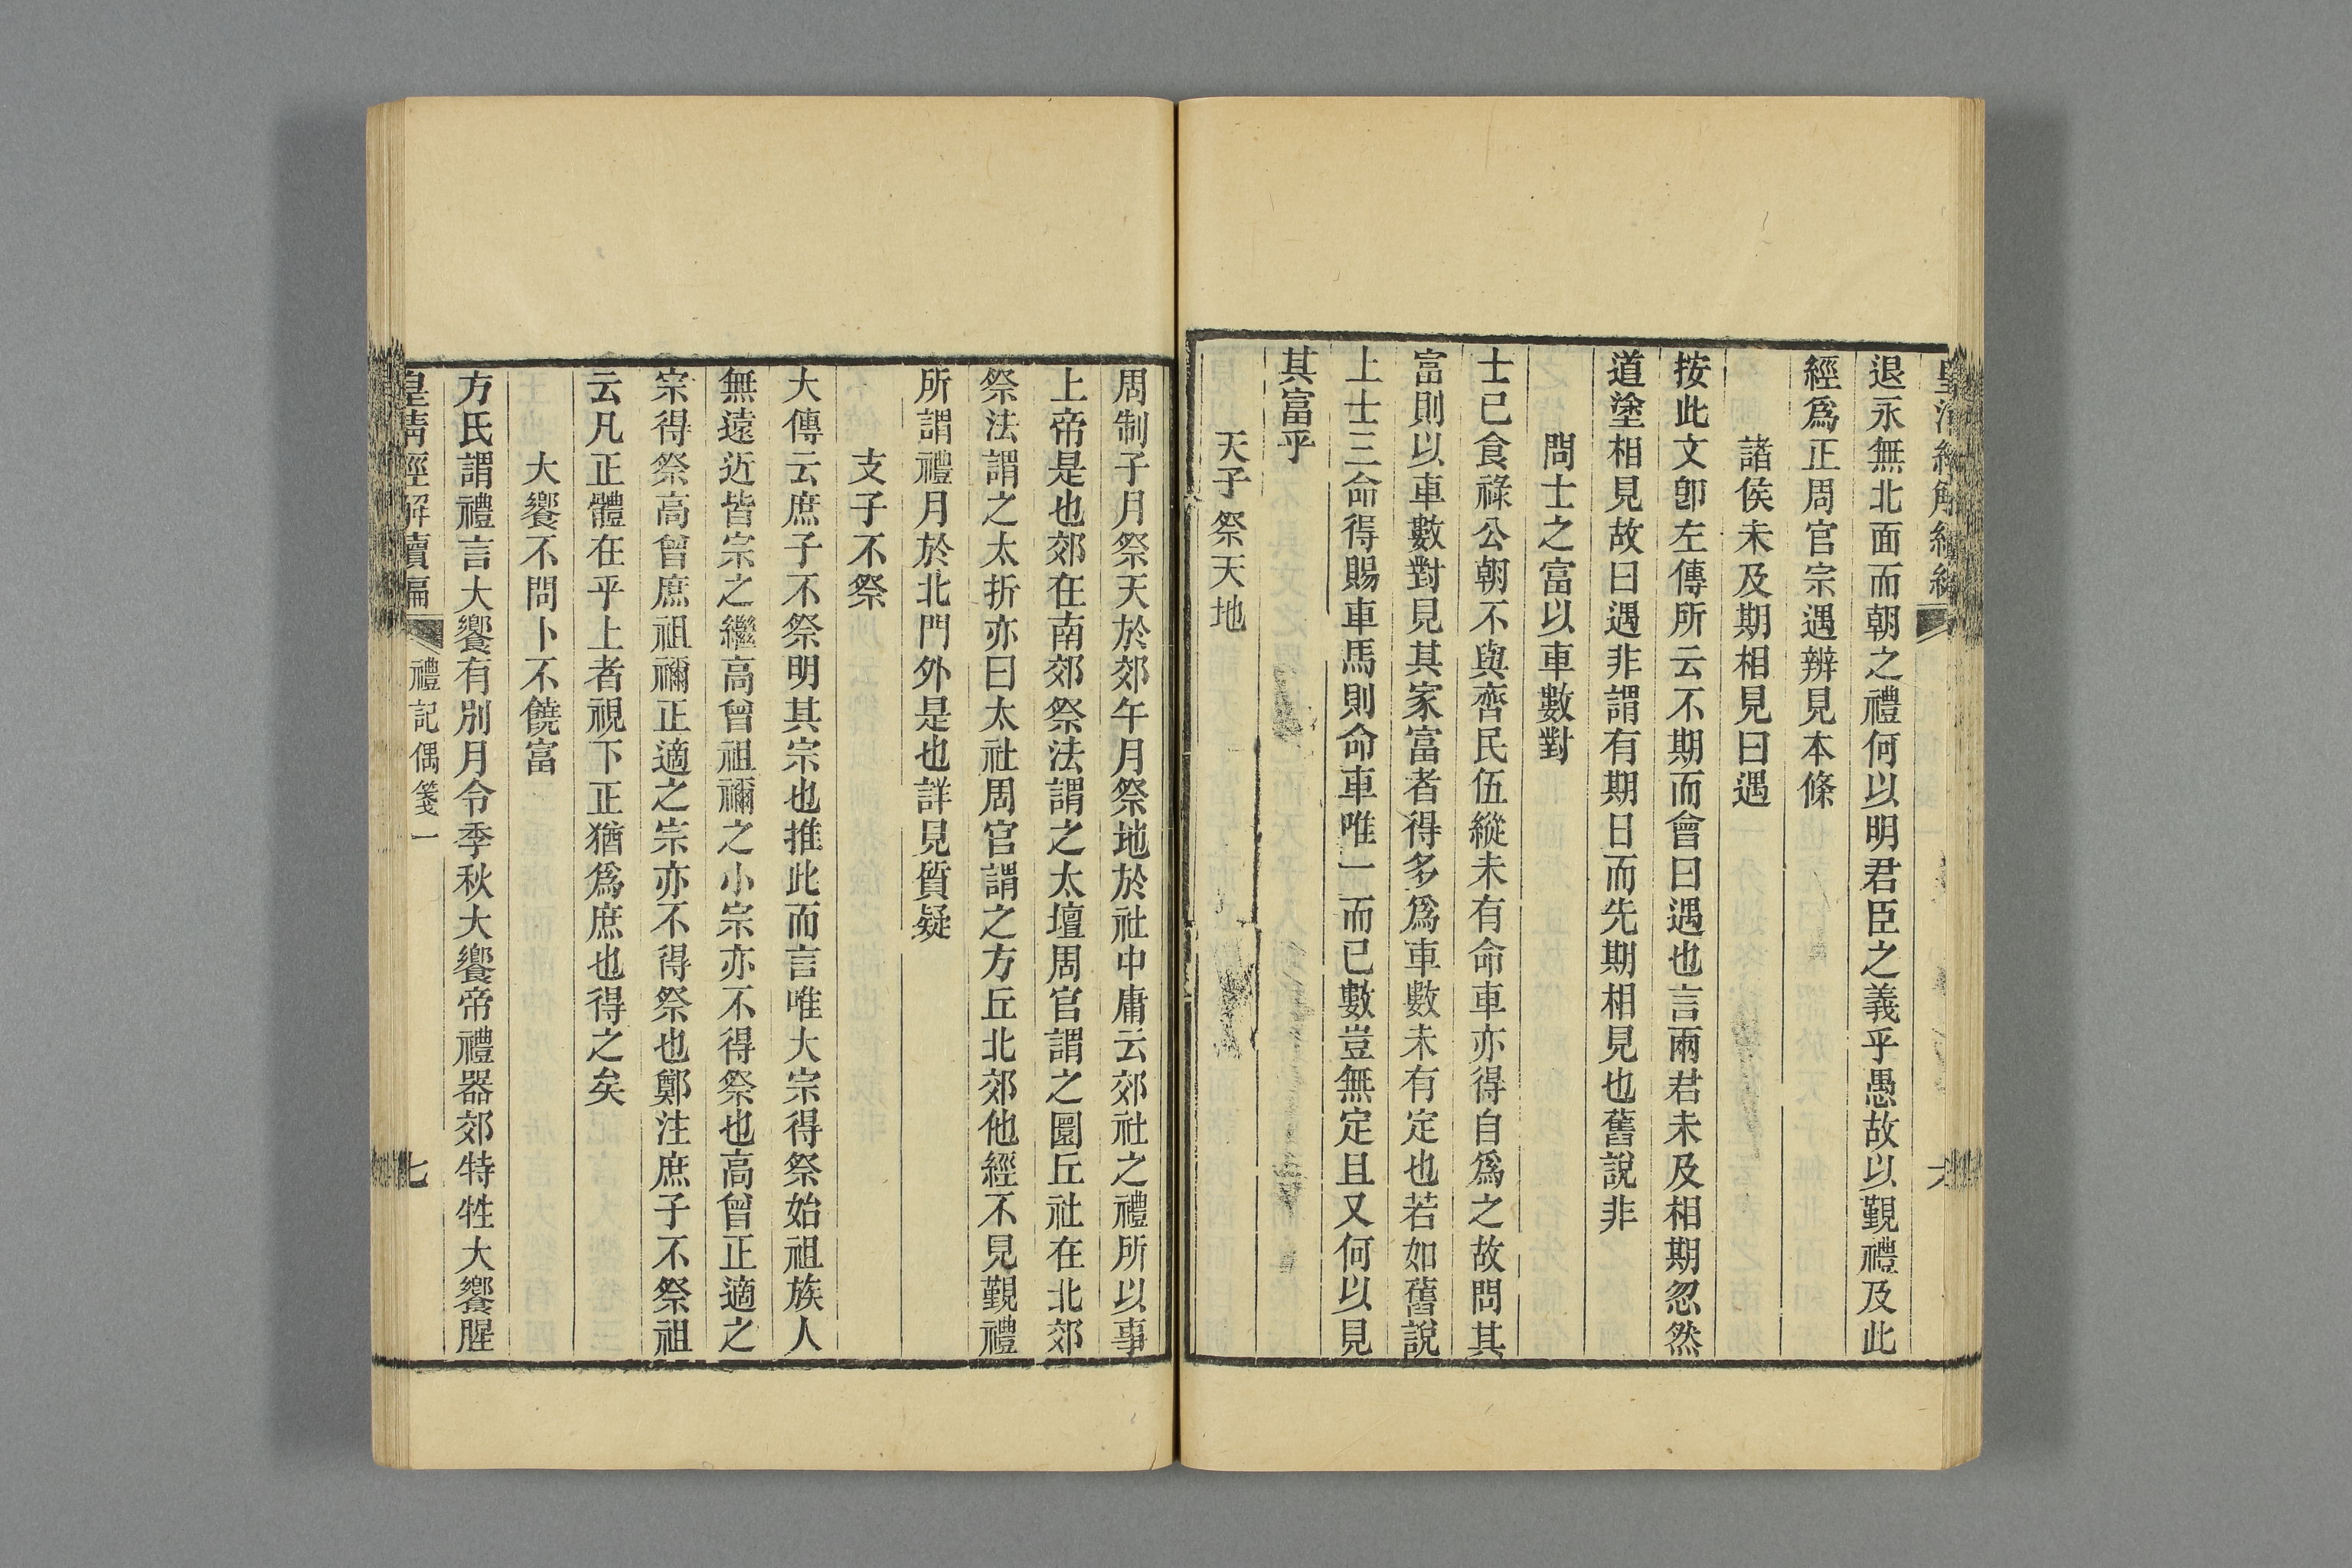 退永無北面而朝之禮何以明君臣之義乎愚故以覲禮及此
經爲正周官宗遇辨見本條
諸侯未及期相見曰遇
按此文卽左傳所云不期而會曰遇也言兩君未及相期忽然
道塗相見故曰遇非謂有期日而先期相見也舊說非
問士之富以車數對
士已食祿公朝不與齊民伍縱未有命車亦得自爲之故問其
富則以車數對見其家富者得多爲車數未有定也若如舊說
上士三命得賜車馬則命車唯一而已數豈無定且又何以見
其富乎
天子祭天地
周制子月祭天於郊午月祭地於社中庸云郊社之禮所以事
上帝是也郊在南郊祭法謂之太壇周官謂之圜丘社在北郊
祭法謂之太折亦曰太社周官謂之方丘北郊他經不見覲禮
所謂禮月於北門外是也詳見質疑
支子不祭
大傳云庶子不祭明其宗也推此而言唯大宗得祭始祖族人
無遠近皆宗之繼高曾祖禰之小宗亦不得祭也高曾正適之
宗得祭高曾庶祖禰正適之宗亦不得祭也鄭注庶子不祭祖
云凡正體在乎上者視下正猶爲庶也得之矣
大饗不問卜不饒富
方氏謂禮言大饗有別月令季秋大饗帝禮器郊特牲大饗腥
皇清經解續編
禮記偶箋一
七